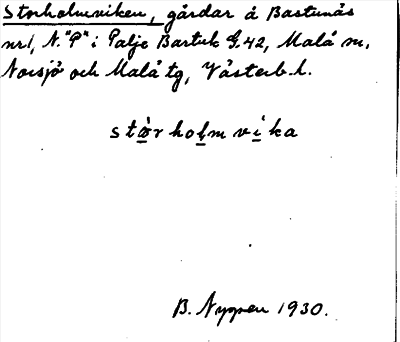 Storholmsviken, gårdar å Bastunäs
nr1, N. "P" i Palje Bartuk G.42, Malå sn,
Norsjö och Malå tg, Västerb. l.
stòrholmvíka
B. Nygren 1930.